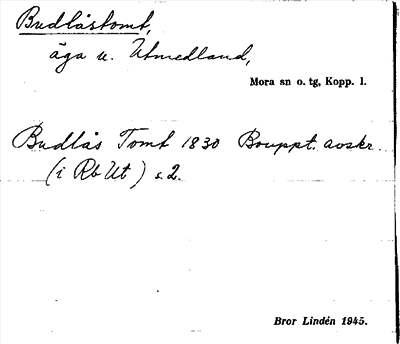 Budlåstomt,
äga u. Utmedland,
Mora sn o. tg, Kopp. l.
Budlås Tomt 1830 Bouppt. avskr.
(i Rb Ut) s. 2.
Bror Lindén 1945.